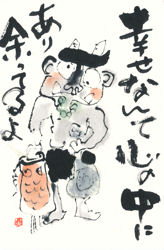 幸せなんて心の中に
あり
余ってるよ